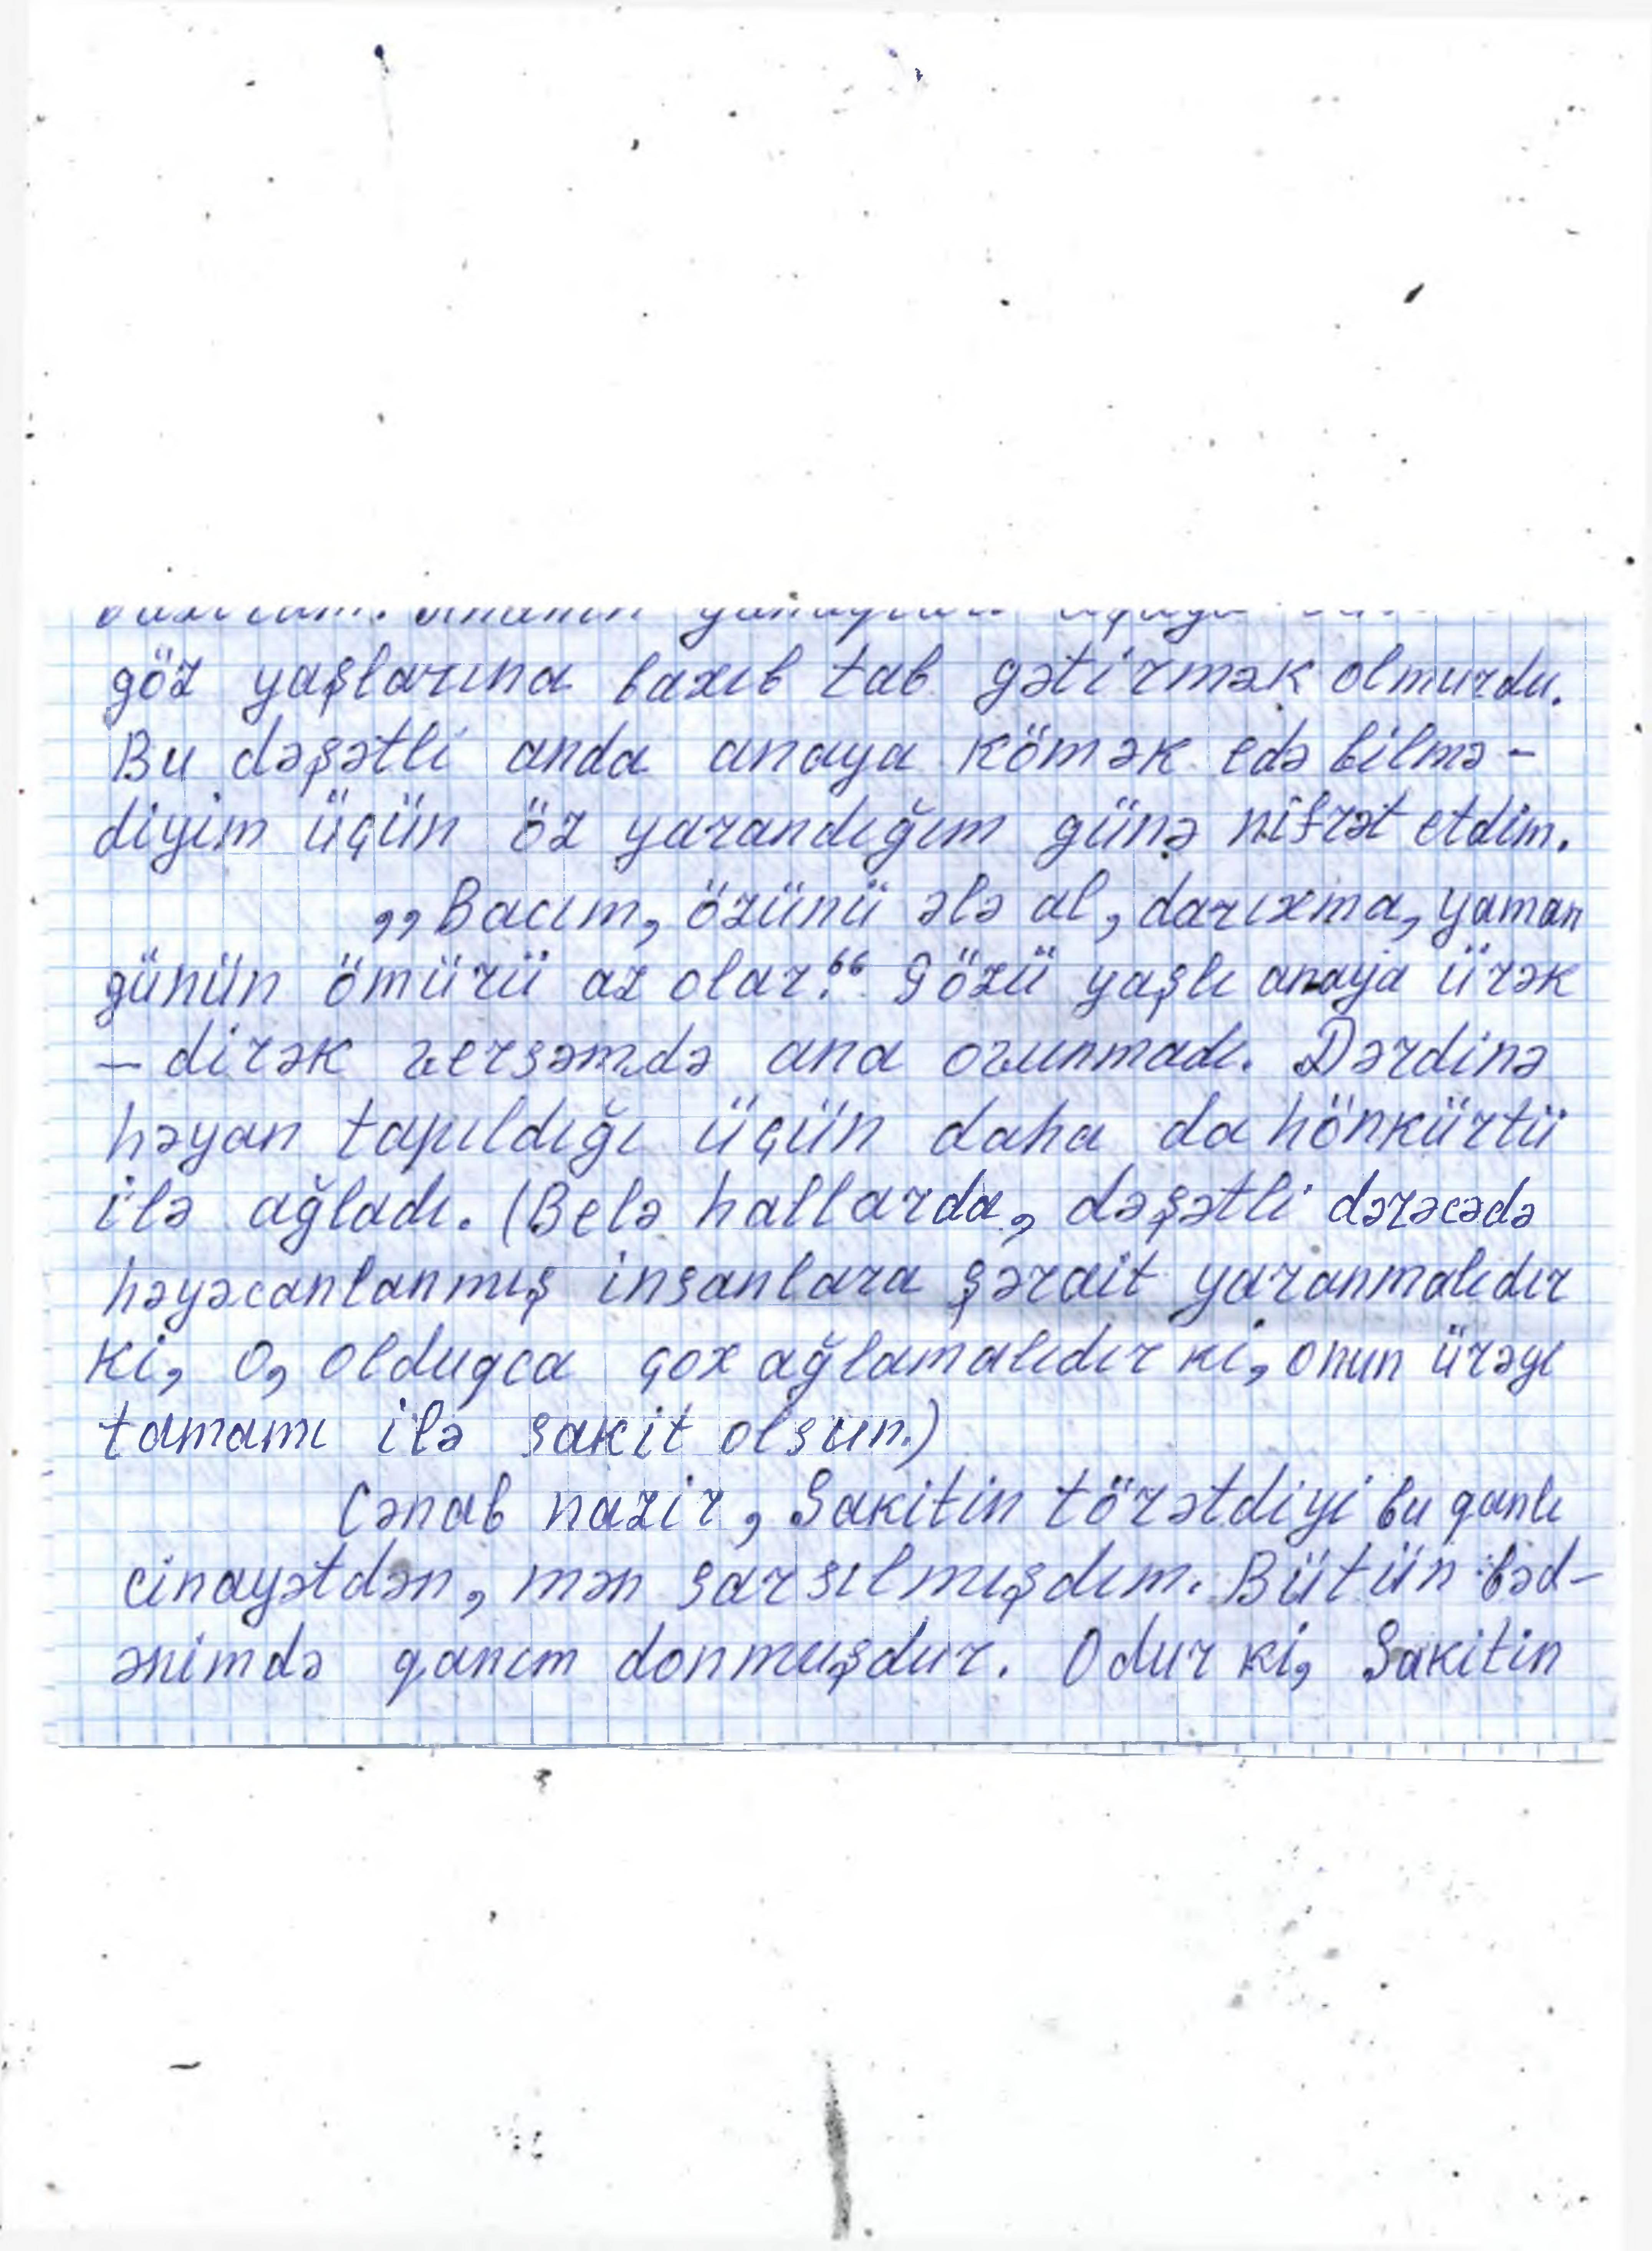 göz yaşlarına baxıb tab gətirmək olmurdu.
Bu dəşətli anda anaya kömək edə bilmə-
diyim üçün öz yarandığım günə nifrət etdim.
„Bacım, özünü ələ al, darıxma, yaman
günün ömürü az olar.“ Gözü yaşlı anaya ürək
– dirək versəmdə ana ovunmadı. Dərdinə
həyan tapıldığı üçün daha da hönkürtü
ilə ağladı. (Belə hallarda, dəşətli dərəcədə
həyəcanlanmış insanlara şərait yaranmalıdır
ki, o, olduqca çox ağlamalıdır ki, onun ürəyi
tamamı ilə sakit olsun.)
Cənab nazir, Sakitin törətdiyi bu qanlı
cinayətdən, mən sarsılmışdım. Bütün bəd-
ənimdə qanım donmuşdur. Odur ki, Sakitin